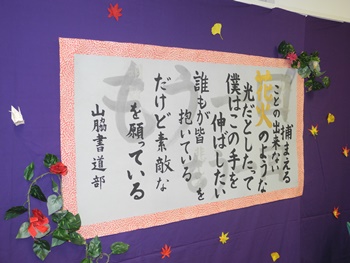 捕まえる
ことの出来ない
花火のような
光だとしたって
もう一
僕はこの手を
伸ばしたい
誰もが皆
を
抱いている
だけど素敵な
を願っている
山脇書道部